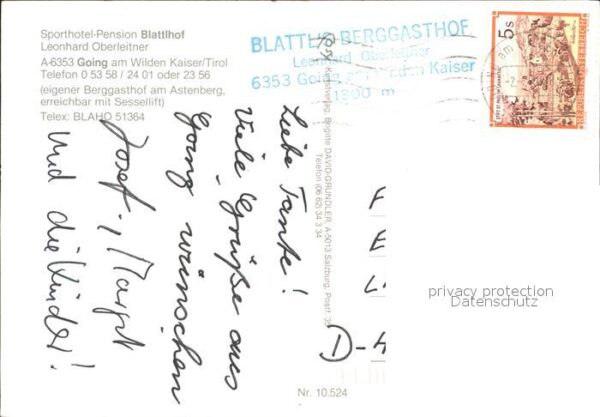 Sporthotel-Pension Blattlhof
Leonhard Oberleitner
A-6353 Going am Wilden Kaiser/Tirol
Telefon 0 53 58 / 24 01 oder 23 56
(eigener Berggasthof am Astenberg,
erreichbar mit Sessellift)
Telex: BLAHO 51364
BLATTLH BERGGASTHOF
Leonhard Oberleitner
6353 Going am Wilden Kaiser
1200 m
5s
REPUBLIK ÖSTERREICH
Liebe Tante!
Viele Grüße aus
Going wünschen
Josef, Margit
und die Kinder!
Kunstverlag Brigitte DAVID-GRÜNDLER, A-5013 Salzburg, Postf. 3
Telefon (06 62) 34 3 34
F
E
L
D-4
privacy protection
Datenschutz
Nr. 10.524